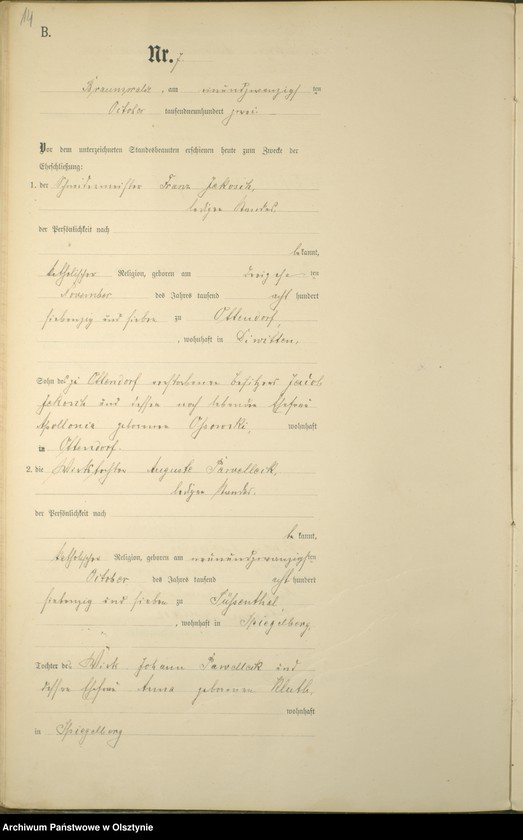 14
B.
Nr. 7
Braunswalde, am neunundzwanzigs ten
October tausendneunhundert zwei
Vor dem unterzeichneten Standesbeamten erschienen heute zum Zwecke der
Eheschließung:
1. der Schneidermeister Franz Jakosch,
ledigen Standes
der Persönlichkeit nach
bekannt,
katholischer Religion, geboren am dreizehn ten
November des Jahres tausend acht hundert
siebenzig und sieben zu Ottendorf,
, wohnhaft in Diwitten.
Sohn des zu Ottendorf verstorbenen Besitzers Jacob
Jakosch und dessen noch lebenden Ehefrau
Apollonia geborenen wohnhaft
in Ottendorf.
2. die Wirthstochter Auguste Pawellack,
ledigen Standes.
der Persönlichkeit nach
be kannt,
katholischer Religion, geboren am neunundzwanzigsten
October des Jahres tausend acht hundert
siebenzig und sieben zu Süssenthal,
, wohnhaft in Spiegelberg.
Tochter des Wirth Johann Pawellack und
dessen Ehefrau Anna geborenen Kluth,
wohnhaft
in Spiegelberg
Archiwum Państwowe w Olsztynie